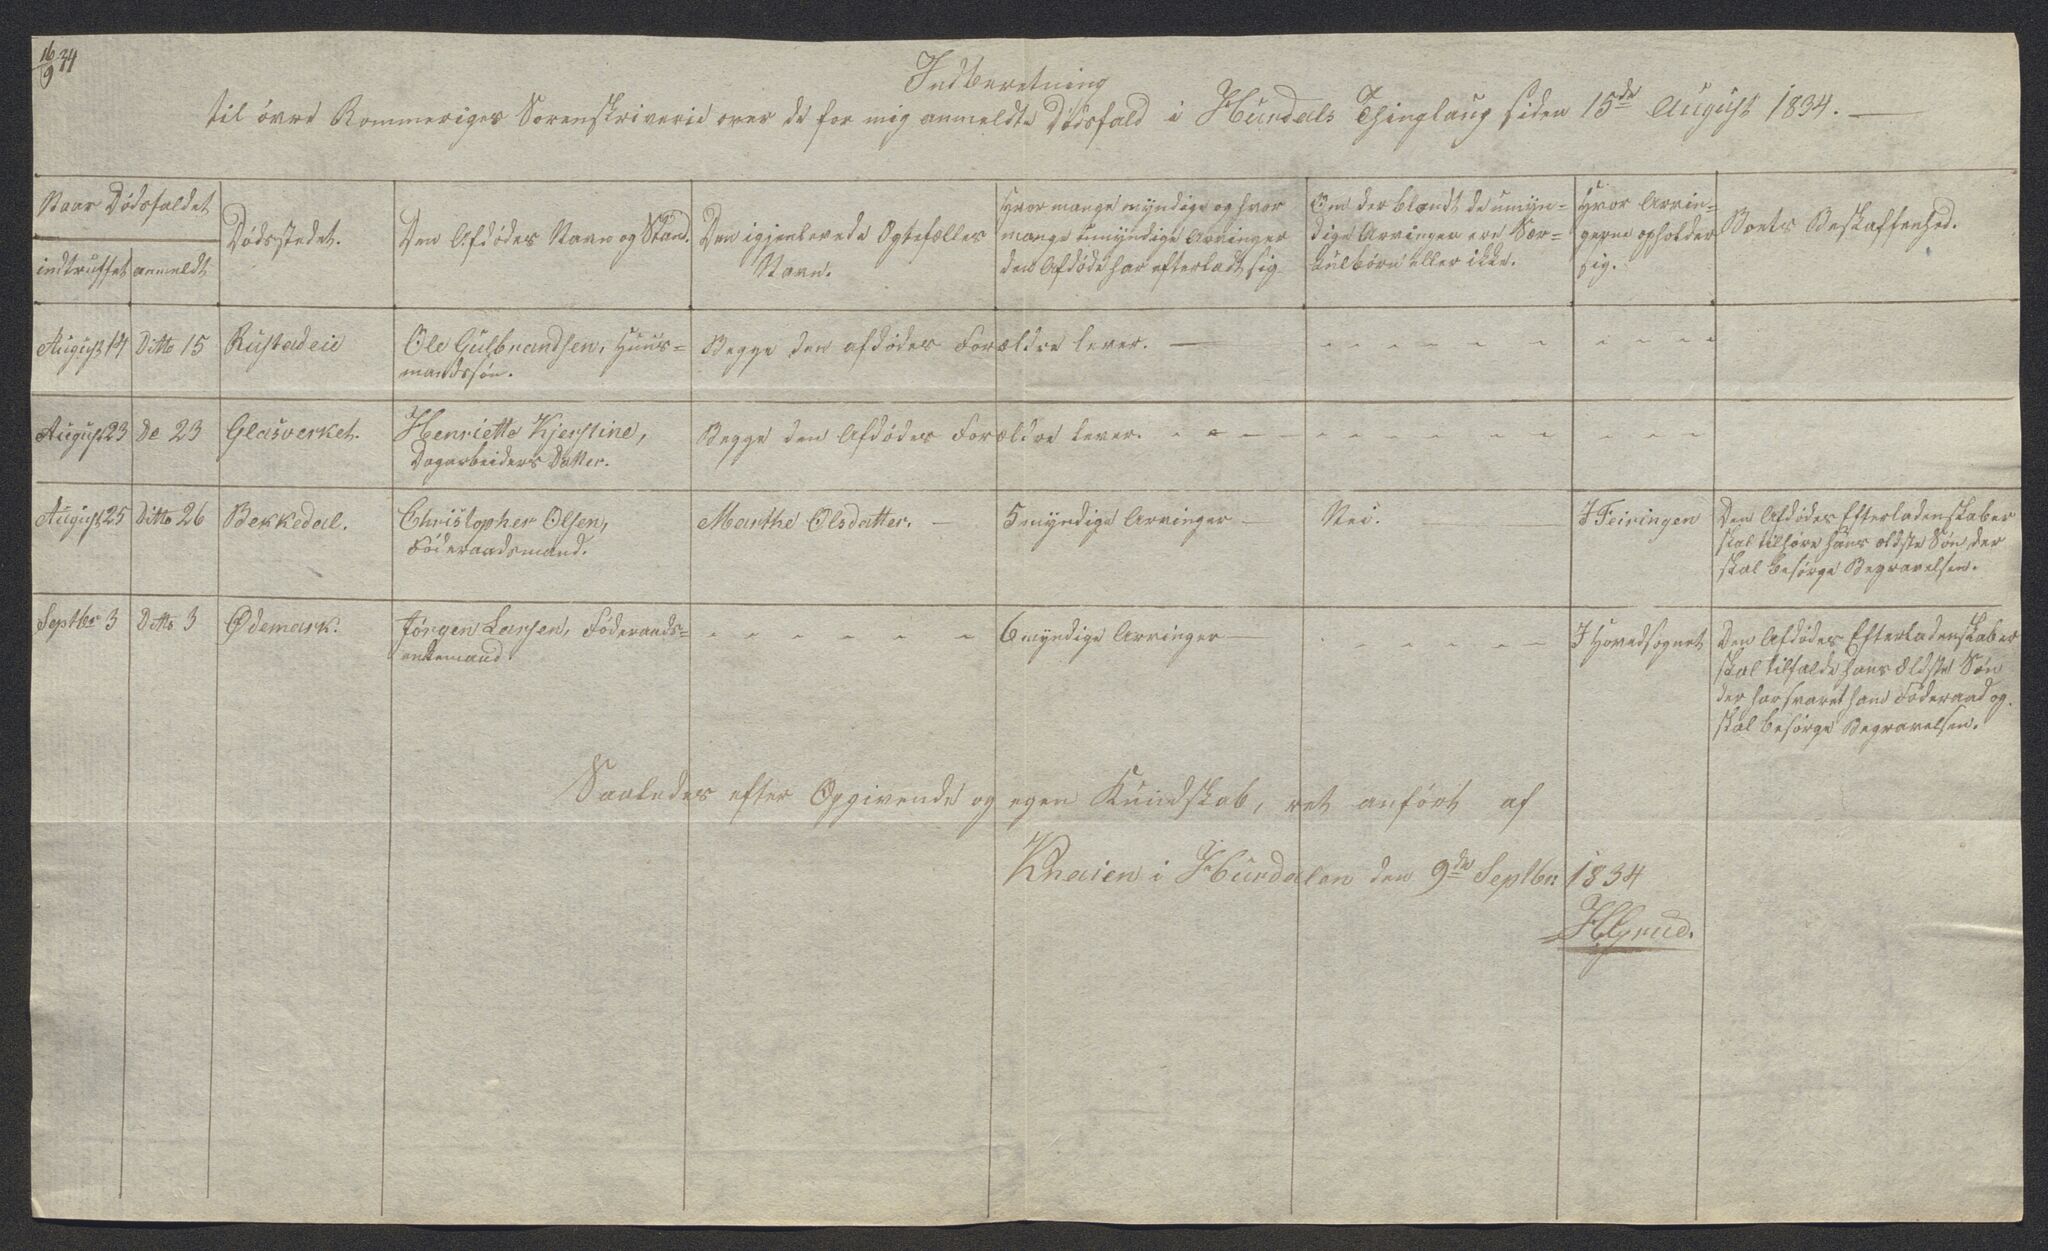 16/9 34
Indberetning
til övre Rommeriges Sorenskriverie over de for mig anmeldte Dödsfald i Hurdals Thinglaug siden 15de August 1834.
Naar Dödsfaldet
indtruffet anmeldt
Dödsstedet.
Den Afdödes Navn og Stand.
Den igjenlevende Ægtefælles
Navn.
Hvor mange myndige og hvor
mange umyndige Arvinger
den Afdöde har efterladt sig
Om der blandt de umyn-
dige Arvinger ere Sær-
kulbörn eller ikke.
Hvor Arvin-
gerne opholder
sig.
Boets Beskaffenhed.
August 14 Ditto 15 Rustadeie Ole Gulbrandsen, Huus- Begge den afdödes Forældre lever.
mandssön.
August 23 Do 23 Glasverket. Henriette Kjerstine, Begge den Afdödes Forældre lever.
Dagarbeiders Datter.
August 25 Ditto 26 Bekkedal. Christopher Olsen, Marthe Olsdatter. 5 myndige Arvinger Nei. I Feiringen Den Afdödes Efterladenskaber
Föderaadsmand. skal tilhöre hans ældste Sön der
skal besörge Begravelsen.
Septbr 3 Ditto 3 Ødemark. Jörgen Larsen, Föderaads- 6 myndige Arvinger I Hovedsognet Den Afdödes Efterladenskaber
enkemand skal tilfalde hans Ældste Sön
der har svaret ham Föderaad og
skal besörge Begravelsen.
Saaledes efter Opgivende og egen Kundskab, ret anfört af
Knaien i Hurdalen den 9de Septbr 1834